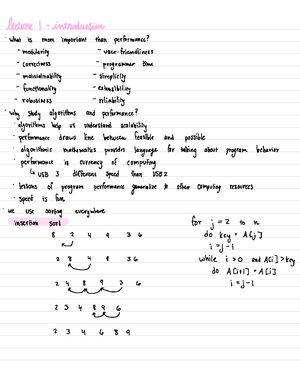 lecture 1 - introduction
· what is more important than performance?
- modularity - user-friendliness
- correctness - programmer time
- maintainability - simplicity
- functionality - extensibility
- robustness - reliability
· why study algorithms and performance?
· algorithms help us understand scalability
· performance draws line between feasible and possible
· algorithmic mathematics provides language for talking about program behavior
· performance is currency of computing
↳ USB 3 different speed than USB 2
· lessons of program performance generalize to other computing resources
· speed is fun
· we use sorting everywhere
insertion sort
8 2 4 9 3 6
2 8 4 9 3 6
2 4 8 9 3 6
2 3 4 8 9 6
2 3 4 6 8 9
for j = 2 to n
do key = A[j]
i = j-1
while i > 0 and A[i] > key
do A[i+1] = A[i]
i = j-1